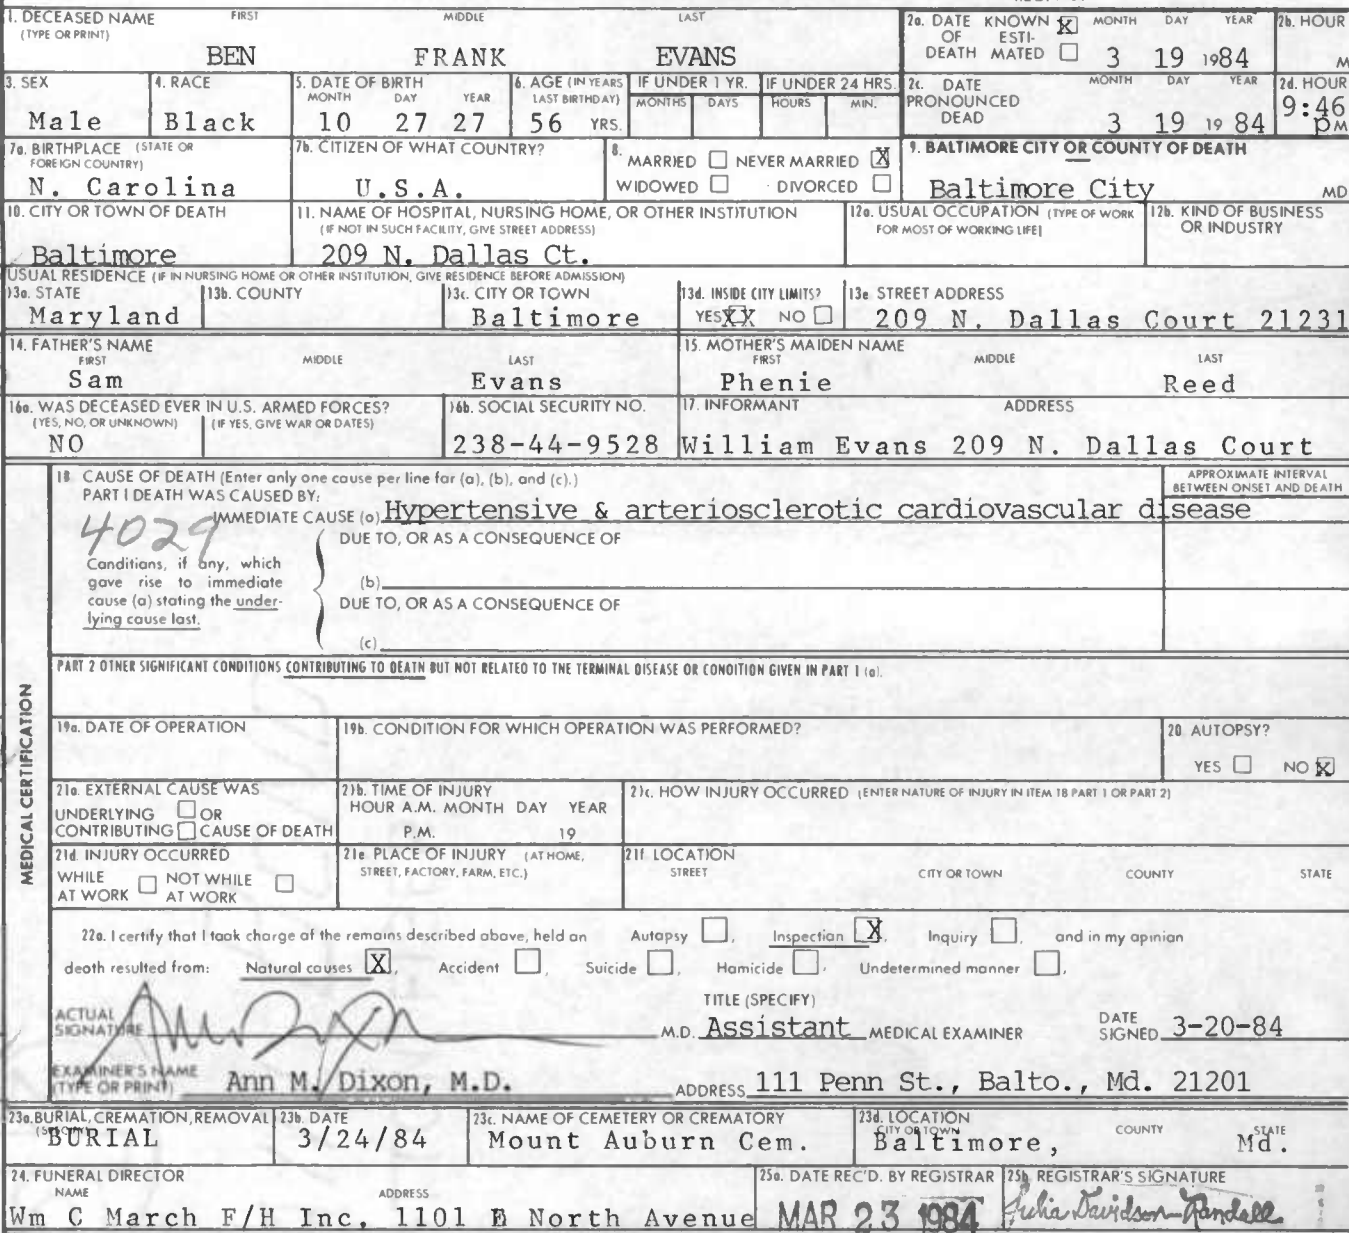 1. DECEASED NAME FIRST MIDDLE LAST
(TYPE OR PRINT)
BEN FRANK EVANS
2a. DATE OF DEATH KNOWN X ESTIMATED MONTH DAY YEAR
3 19 1984
2b. HOUR
M
3. SEX
Male
4. RACE
Black
5. DATE OF BIRTH
MONTH DAY YEAR
10 27 27
6. AGE (IN YEARS LAST BIRTHDAY)
56 YRS.
IF UNDER 1 YR.
MONTHS DAYS
IF UNDER 24 HRS.
HOURS MIN.
2c. DATE PRONOUNCED DEAD MONTH DAY YEAR
3 19 19 84
2d. HOUR
9:46
PM
7a. BIRTHPLACE (STATE OR FOREIGN COUNTRY)
N. Carolina
7b. CITIZEN OF WHAT COUNTRY?
U.S.A.
8. MARRIED NEVER MARRIED X
WIDOWED DIVORCED
9. BALTIMORE CITY OR COUNTY OF DEATH
Baltimore City MD
10. CITY OR TOWN OF DEATH
Baltimore
11. NAME OF HOSPITAL, NURSING HOME, OR OTHER INSTITUTION
(IF NOT IN SUCH FACILITY, GIVE STREET ADDRESS)
209 N. Dallas Ct.
12a. USUAL OCCUPATION (TYPE OF WORK FOR MOST OF WORKING LIFE)
12b. KIND OF BUSINESS OR INDUSTRY
USUAL RESIDENCE (IF IN NURSING HOME OR OTHER INSTITUTION, GIVE RESIDENCE BEFORE ADMISSION)
13a. STATE
Maryland
13b. COUNTY
13c. CITY OR TOWN
Baltimore
13d. INSIDE CITY LIMITS?
YES XX NO
13e STREET ADDRESS
209 N. Dallas Court 21231
14. FATHER'S NAME
FIRST MIDDLE LAST
Sam Evans
15. MOTHER'S MAIDEN NAME
FIRST MIDDLE LAST
Phenie Reed
16a. WAS DECEASED EVER IN U.S. ARMED FORCES?
(YES, NO, OR UNKNOWN) (IF YES, GIVE WAR OR DATES)
NO
16b. SOCIAL SECURITY NO.
238-44-9528
17. INFORMANT ADDRESS
William Evans 209 N. Dallas Court
MEDICAL CERTIFICATION
18 CAUSE OF DEATH (Enter only one cause per line for (a), (b), and (c).)
PART I DEATH WAS CAUSED BY:
APPROXIMATE INTERVAL
BETWEEN ONSET AND DEATH
IMMEDIATE CAUSE (a) Hypertensive & arteriosclerotic cardiovascular disease
4029
DUE TO, OR AS A CONSEQUENCE OF
Conditions, if any, which
gave rise to immediate
cause (a) stating the under-
lying cause last.
(b)
DUE TO, OR AS A CONSEQUENCE OF
(c)
PART 2 OTHER SIGNIFICANT CONDITIONS CONTRIBUTING TO DEATH BUT NOT RELATED TO THE TERMINAL DISEASE OR CONDITION GIVEN IN PART 1 (a).
19a. DATE OF OPERATION
19b. CONDITION FOR WHICH OPERATION WAS PERFORMED?
20 AUTOPSY?
YES NO X
21a. EXTERNAL CAUSE WAS
UNDERLYING OR
CONTRIBUTING CAUSE OF DEATH
21b. TIME OF INJURY
HOUR A.M. MONTH DAY YEAR
P.M. 19
21c. HOW INJURY OCCURRED (ENTER NATURE OF INJURY IN ITEM 18 PART 1 OR PART 2)
21d. INJURY OCCURRED
WHILE AT WORK NOT WHILE AT WORK
21e PLACE OF INJURY (AT HOME, STREET, FACTORY, FARM, ETC.)
21f LOCATION
STREET CITY OR TOWN COUNTY STATE
22a. I certify that I took charge of the remains described above, held an Autopsy , Inspection X, Inquiry , and in my opinion
death resulted from: Natural causes X, Accident , Suicide , Homicide , Undetermined manner .
ACTUAL SIGNATURE
Ann Dixon
M.D.
TITLE (SPECIFY)
Assistant MEDICAL EXAMINER
DATE SIGNED 3-20-84
EXAMINER'S NAME
(TYPE OR PRINT) Ann M. Dixon, M.D.
ADDRESS 111 Penn St., Balto., Md. 21201
23a. BURIAL, CREMATION, REMOVAL
(SPECIFY)
BURIAL
23b. DATE
3/24/84
23c. NAME OF CEMETERY OR CREMATORY
Mount Auburn Cem.
23d. LOCATION
CITY OR TOWN COUNTY STATE
Baltimore, Md.
24. FUNERAL DIRECTOR
NAME ADDRESS
Wm C March F/H Inc, 1101 E North Avenue
25a. DATE REC'D. BY REGISTRAR
MAR 23 1984
25b REGISTRAR'S SIGNATURE
Julia Davidson-Randall